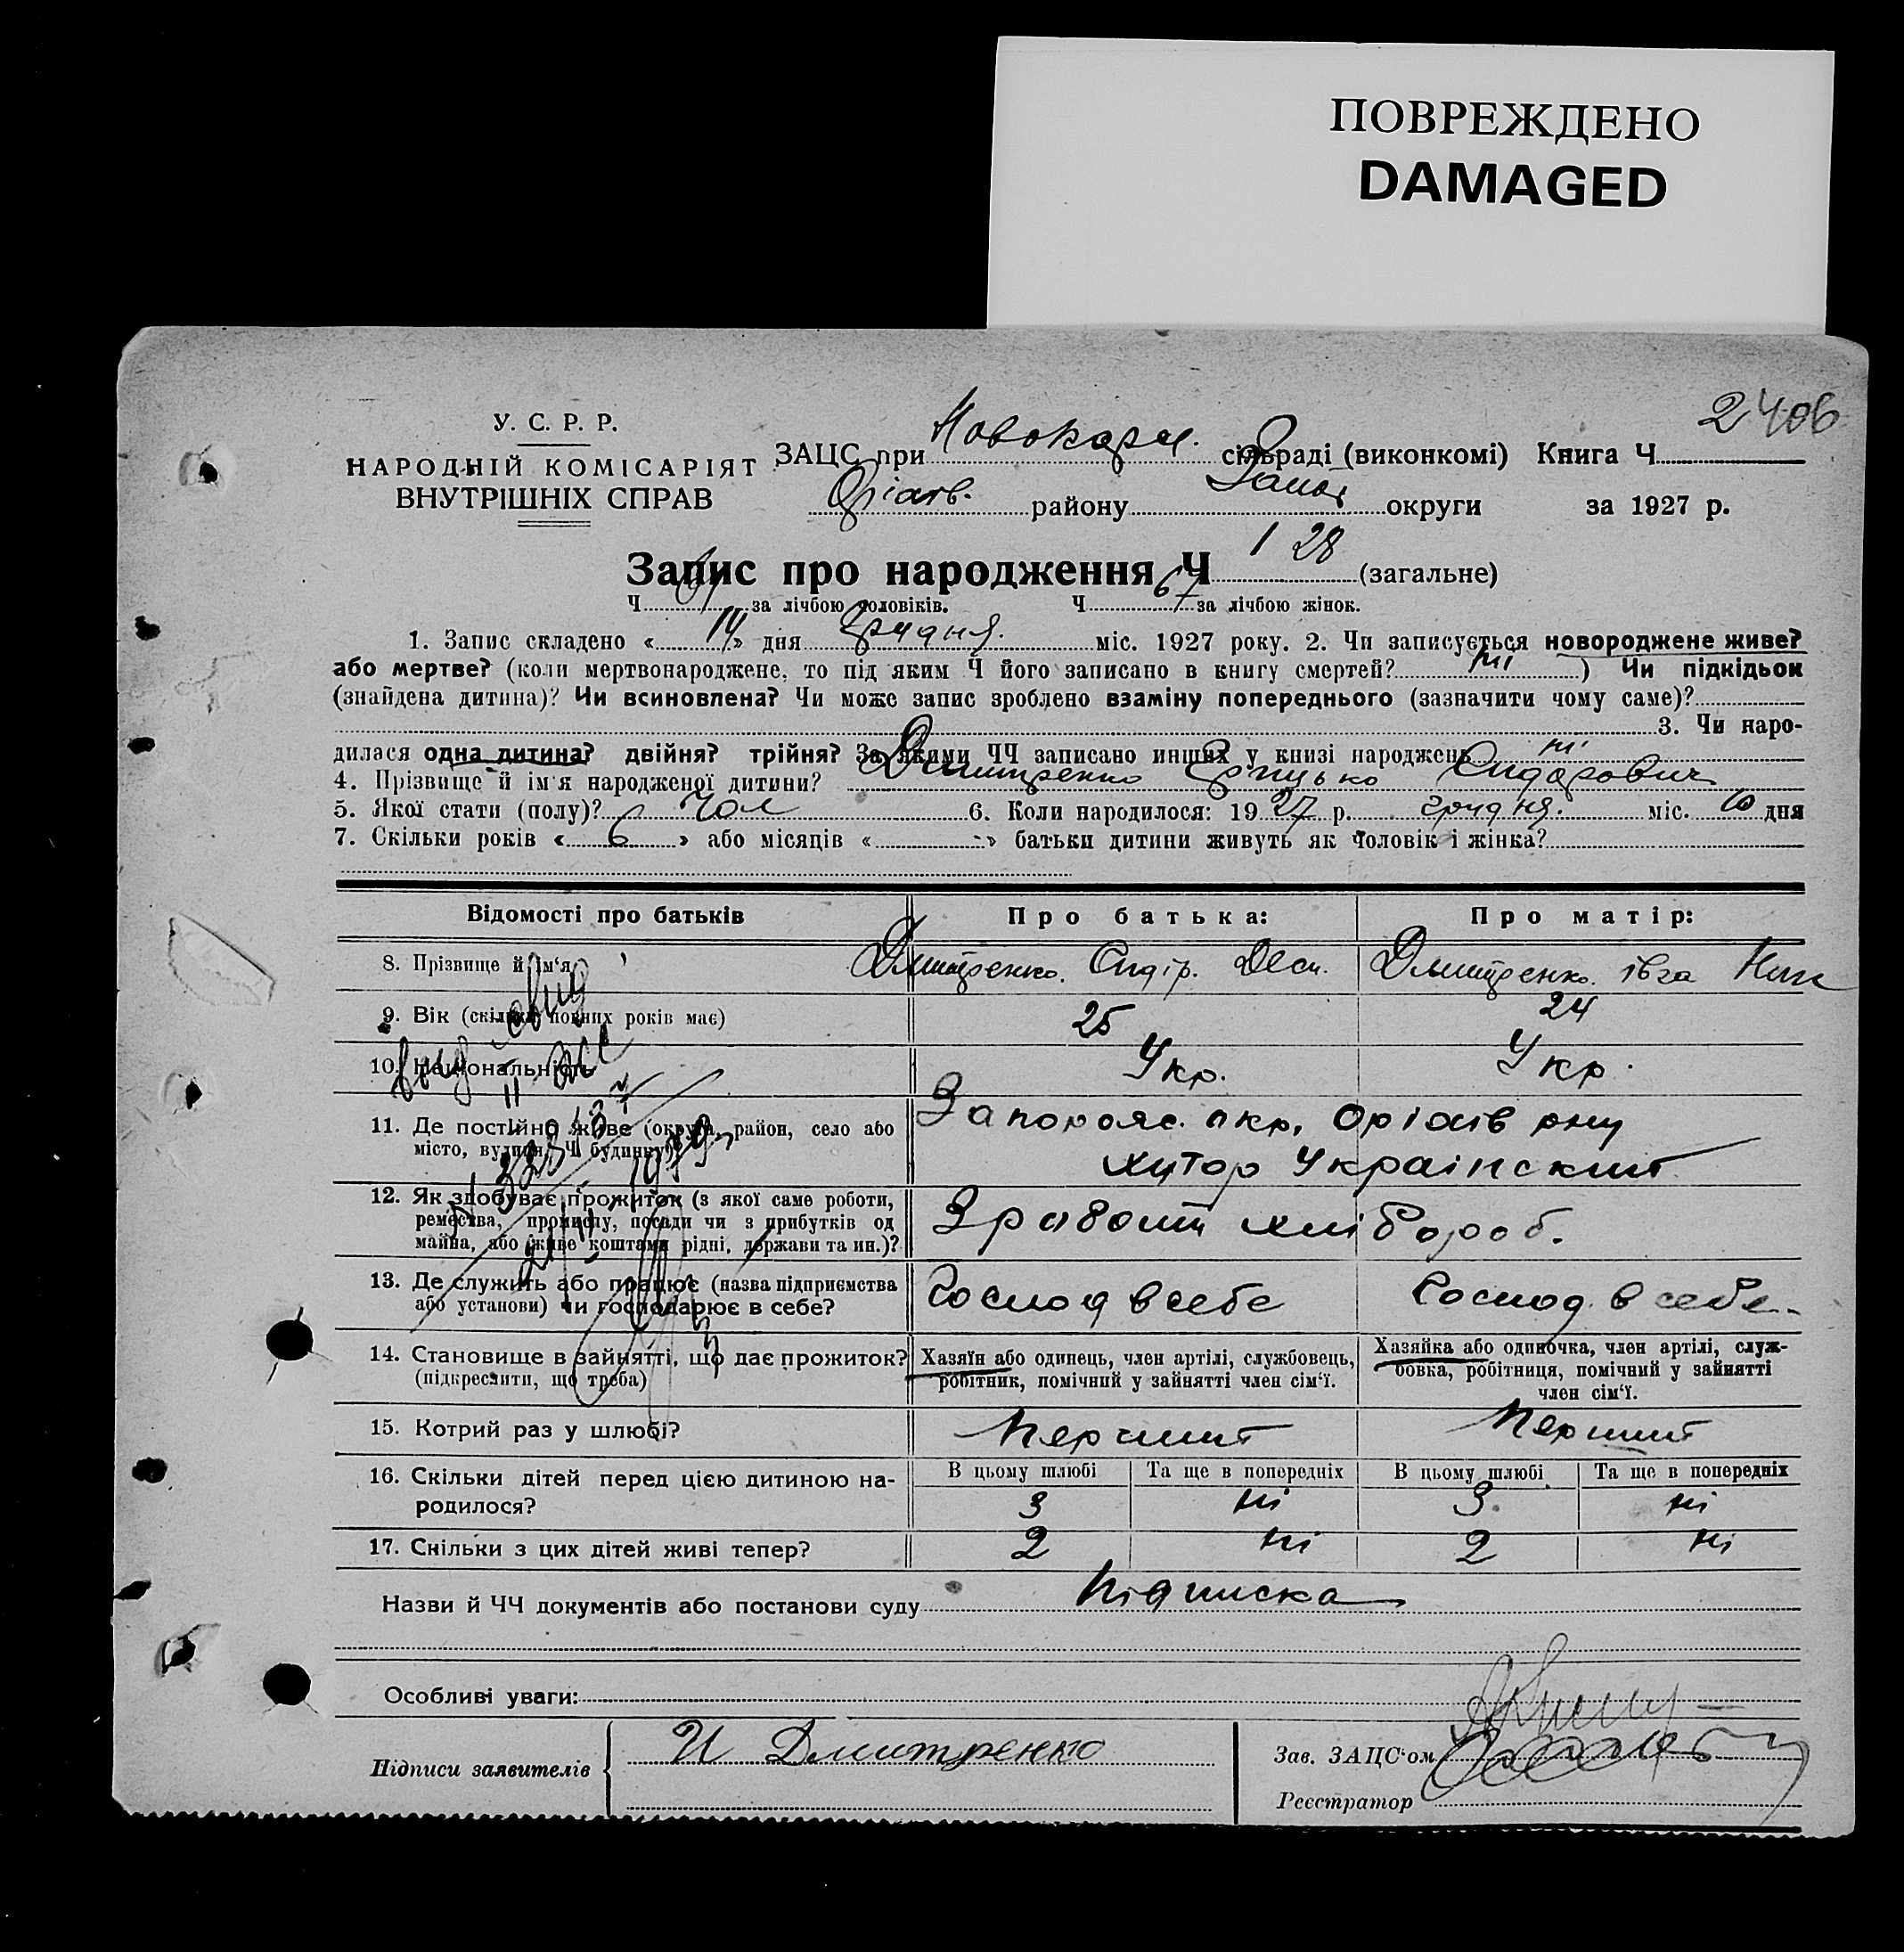 ПОВРЕЖДЕНО
DAMAGED
2406
У. С. Р. Р.
НАРОДНІЙ КОМІСАРІЯТ
ВНУТРІШНІХ СПРАВ
ЗАЦС при Новокарл. сільраді (виконкомі) Книга Ч.
Оріхів. району Запор округи за 1927 р.
Запис про народження Ч 128 (загальне)
Ч 61 за лічбою чоловіків. Ч 67 за лічбою жінок.
1. Запис складено « 14 » дня Грудня. міс. 1927 року. 2. Чи записується новороджене живе?
або мертве? (коли мертвонароджене, то під яким Ч його записано в книгу смертей? ні ) Чи підкідьок
(знайдена дитина)? Чи всиновлена? Чи може запис зроблено взаміну попереднього (зазначити чому саме)?
3. Чи наро-
дилася одна дитина? двійня? трійня? За якими ЧЧ записано инших у книзі народжень ні
4. Прізвище й ім'я народженої дитини? Дмитренко Грицько Сидорович
5. Якої стати (полу)? Чол 6. Коли народилося: 1927 р. грудня. міс. 10 дня
7. Скільки років « 6 » або місяців « - » батьки дитини живуть як чоловік і жінка?
Відомості про батьків Про батька: Про матір:
8. Прізвище й ім'я Дмитренко. Сидір. Дмитренко. Івга
9. Вік (скільки повних років має) 25 24
10. Національність Укр. Укр.
11. Де постійно живе (округа, район, село або Запорож. окр. Оріхів рну
місто, вулиця, Ч будинку)? хутор Українский
12. Як здобуває прожиток (з якої саме роботи,
ремества, промислу, посади чи з прибутків од
майна, або живе коштами рідні, держави та ин.)? Зработи хлібороб.
13. Де служить або працює (назва підприємства
або установи) чи господарює в себе? Господ в себе Господ. в себе
14. Становище в зайнятті, що дає прожиток? Хазяїн або одинець, член артілі, службовець, Хазяйка або одиночка, член артілі, служ-
(підкреслити, що треба) робітник, помічний у зайнятті член сім'ї. бовка, робітниця, помічний у зайнятті
член сім'ї.
15. Котрий раз у шлюбі? Перший Перший
16. Скільки дітей перед цією дитиною на- В цьому шлюбі Та ще в попередніх В цьому шлюбі Та ще в попередніх
родилося? 3 ні 3 ні
17. Скільки з цих дітей живі тепер? 2 ні 2 ні
Назви й ЧЧ документів або постанови суду Підписка
Особливі уваги:
Підписи заявителів И Дмитренко Зав. ЗАЦС'ом
Реєстратор